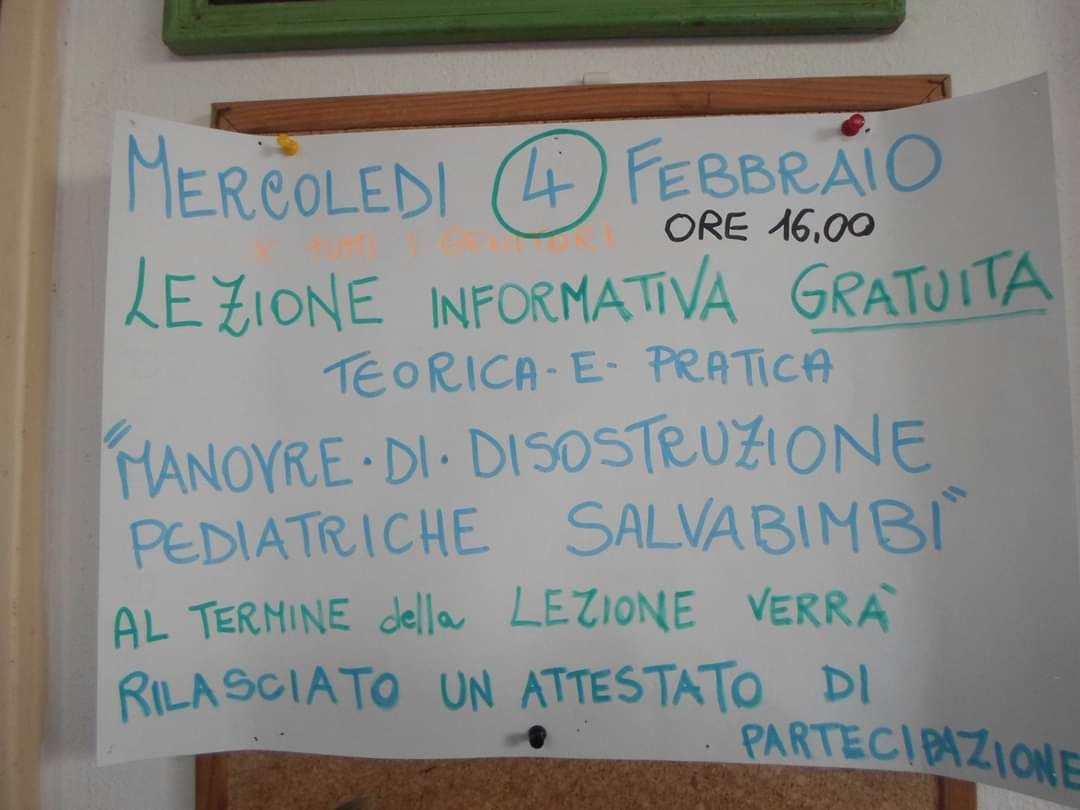 MERCOLEDI 4 FEBBRAIO
ORE 16,00
X TUTTI I GENITORI
LEZIONE INFORMATIVA GRATUITA
TEORICA - E - PRATICA
"MANOVRE · DI · DISOSTRUZIONE
PEDIATRICHE SALVABIMBI"
AL TERMINE della LEZIONE VERRÀ
RILASCIATO UN ATTESTATO DI
PARTECIPAZIONE